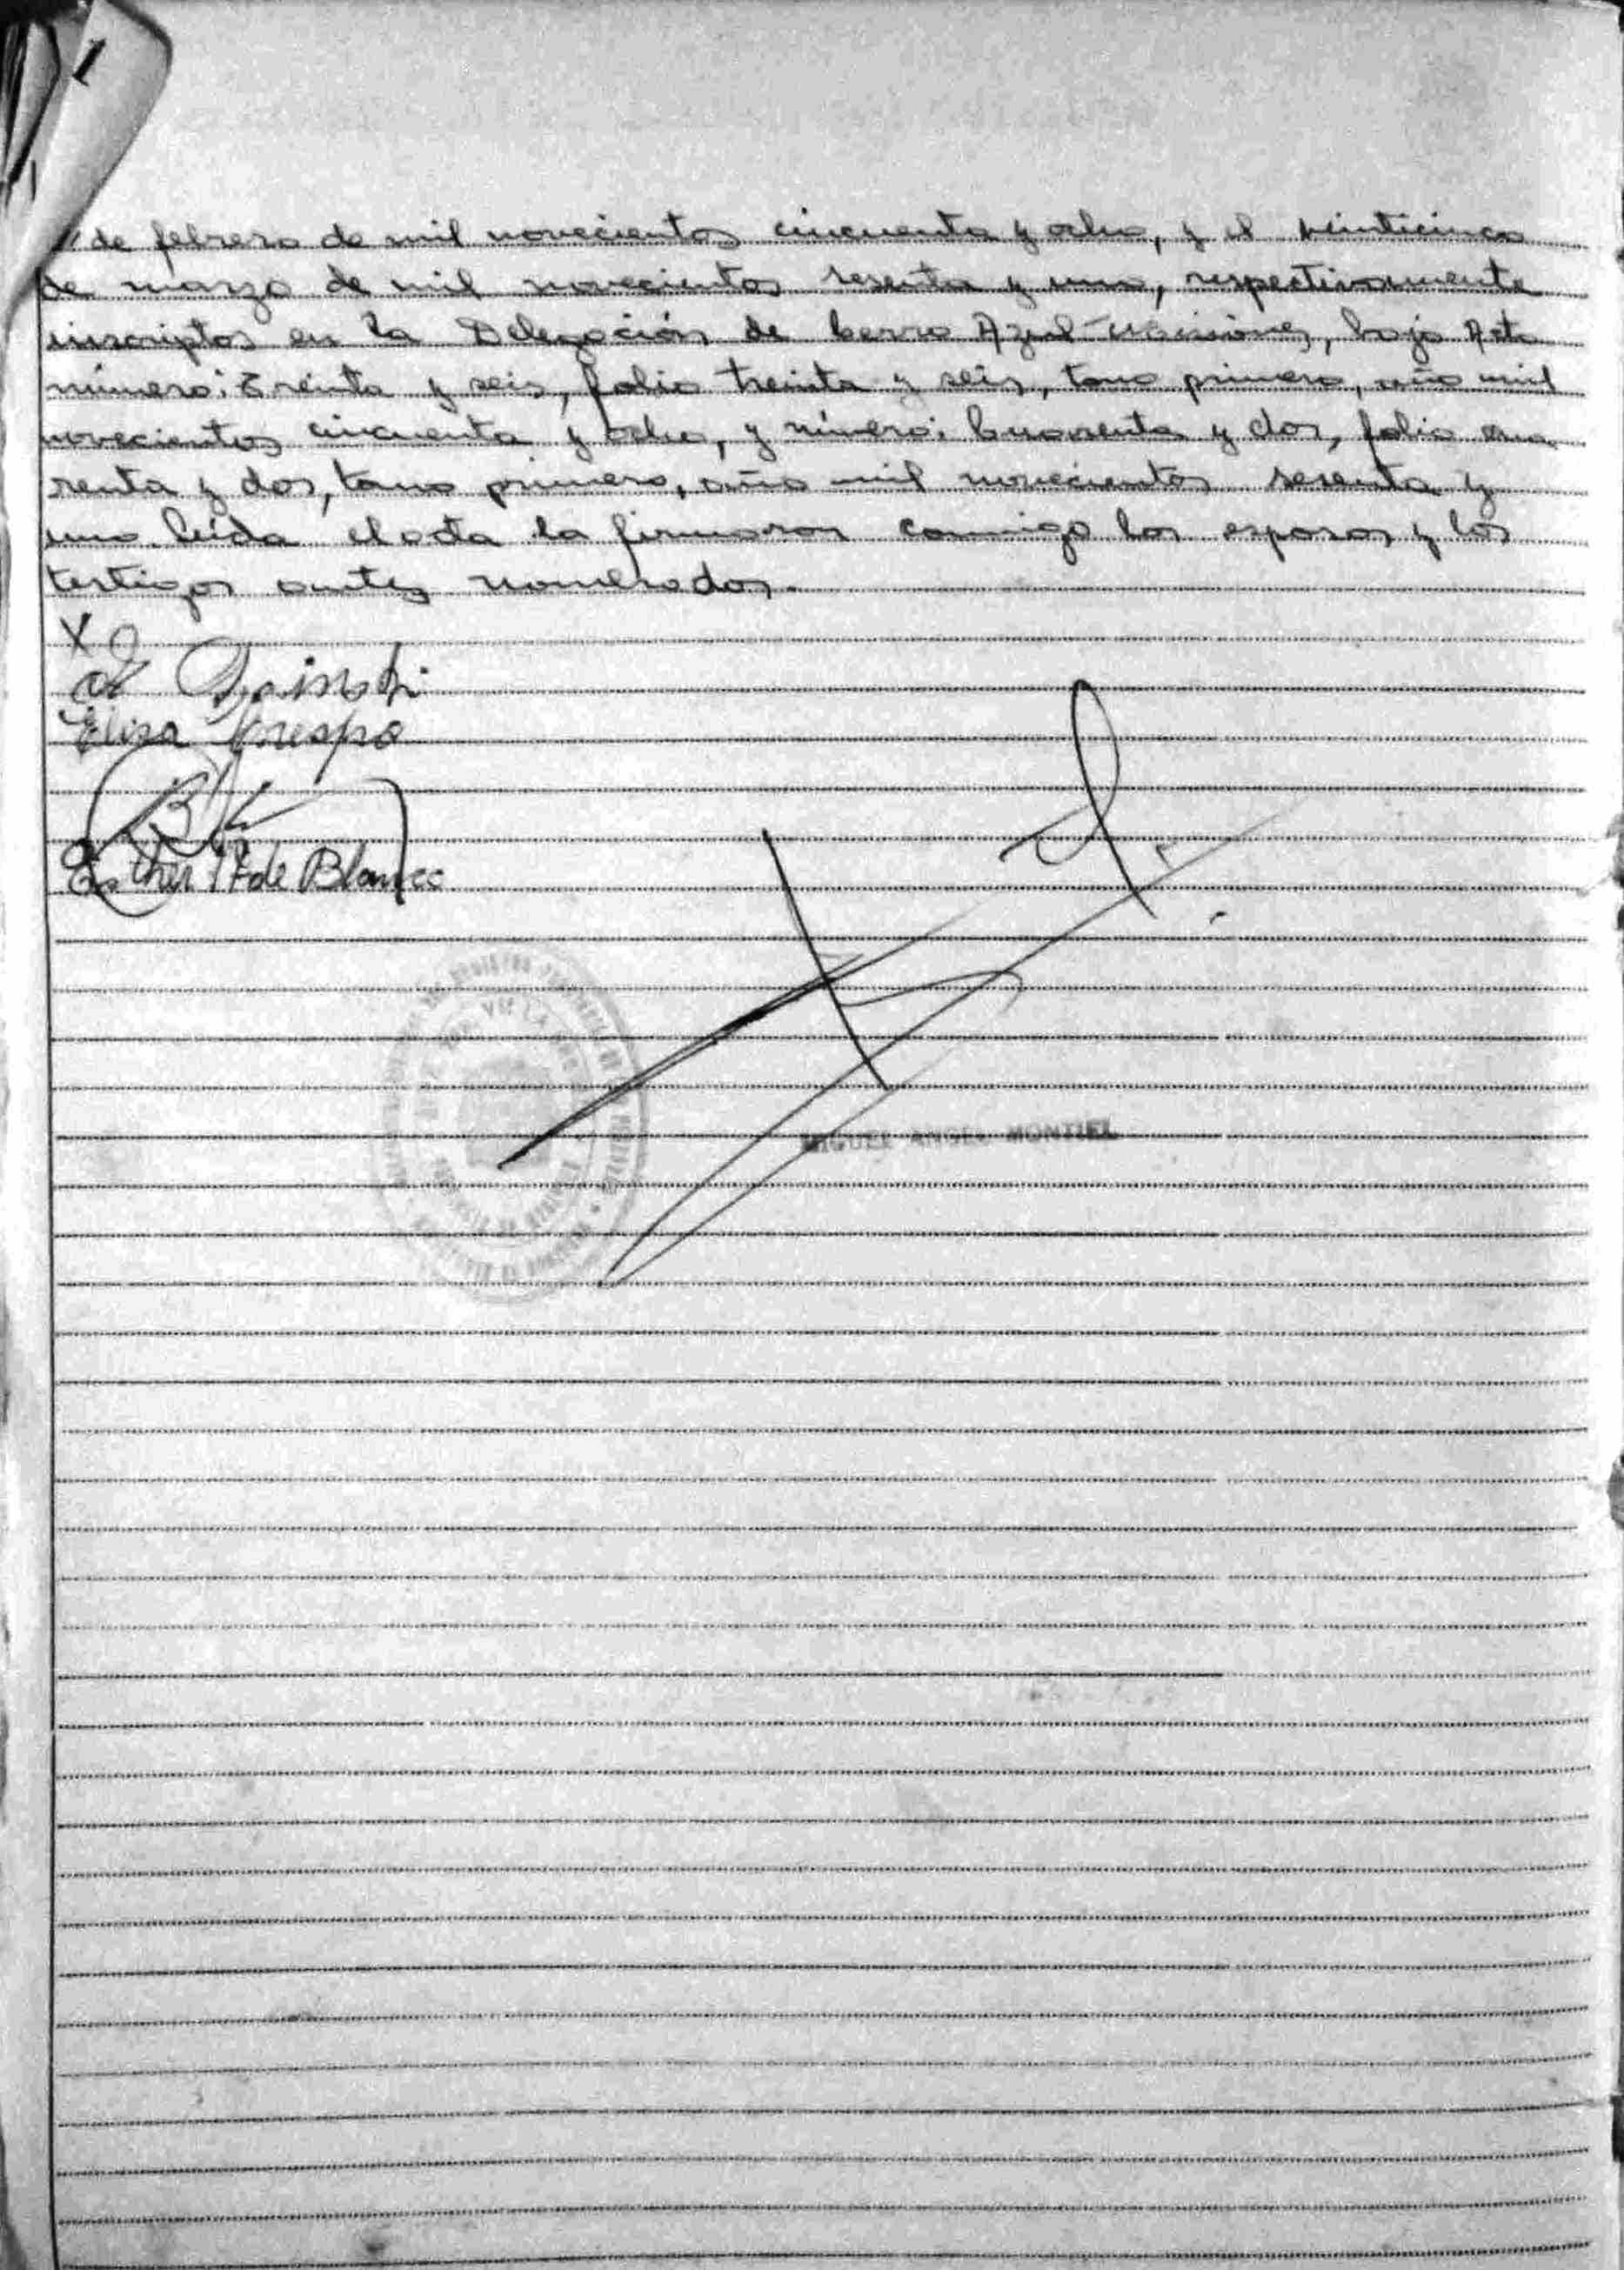 de febrero de mil novecientos cincuenta y ocho, y el veinticinco
de marzo de mil novecientos sesenta y uno, respectivamente
inscriptos en la Delegación de Cerro Azul-Misiones, bajo Acta
número: Treinta y seis, folio treinta y seis, tomo primero, año mil
novecientos cincuenta y ocho, y número: Cuarenta y dos, folio cua
renta y dos, tomo primero, año mil novecientos sesenta y
uno. Leída el acta la firmaron conmigo los esposos y los
testigos antes nombrados.
X
Elisa Crespo
Esther de Blanco
MIGUEL ANGEL MONTIEL